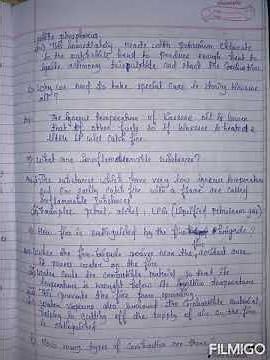 white phosphorus
this immediately reacts with potassium chlorate
in the matchstick head to produce enough heat to
ignite antimony trisulphide and start the combustion.
Why we need to take special care in storing kerosene
oil?
The ignition temperature of kerosene oil is lower
than that of other fuels so if kerosene is heated a
little it will catch fire.
What are Inflammable substances?
The substances which have very low ignition temperature
and can easily catch fire with a flame are called
inflammable substances
Examples petrol, alcohol, LPG (liquified petroleum gas)
How fire is extinguished by the fire brigade?
fire
When the fire brigade arrives near the accident area
it pours water on the fire
Water cools the combustible material so that the
temperature is brought below its ignition temperature
This prevents the fire from spreading.
Water vapours also surround the combustible material,
helping in cutting off the supply of air. So the fire
is extinguished.
How many types of combustion are there
FILMIGO